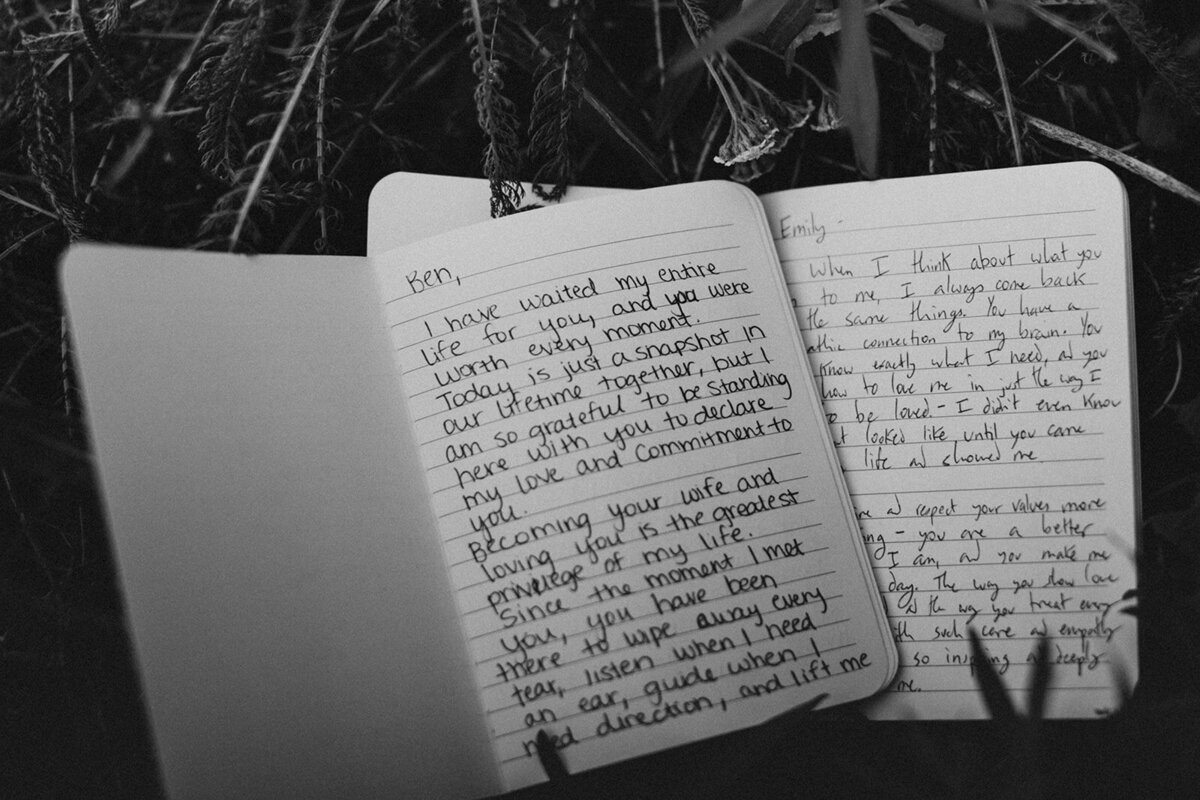 Ben,
I have waited my entire
life for you, and you were
worth every moment.
Today is just a snapshot in
our lifetime together, but I
am so grateful to be standing
here with you to declare
my love and commitment to
you.
Becoming your wife and
loving you is the greatest
privilege of my life.
Since the moment I met
you, you have been
there to wipe away every
tear, listen when I need
an ear, guide when I
need direction, and lift me
Emily -
When I think about what you
to me, I always come back
the same things. You have a
connection to my brain. You
know exactly what I need, and you
how to love me in just the way I
be loved. - I didn't even know
looked like until you came
life and showed me
and respect your values more
- you are a better
I am, and you make me
day. The way you show love
the way you treat every
such care and empathy
so inspiring and deeply
me.